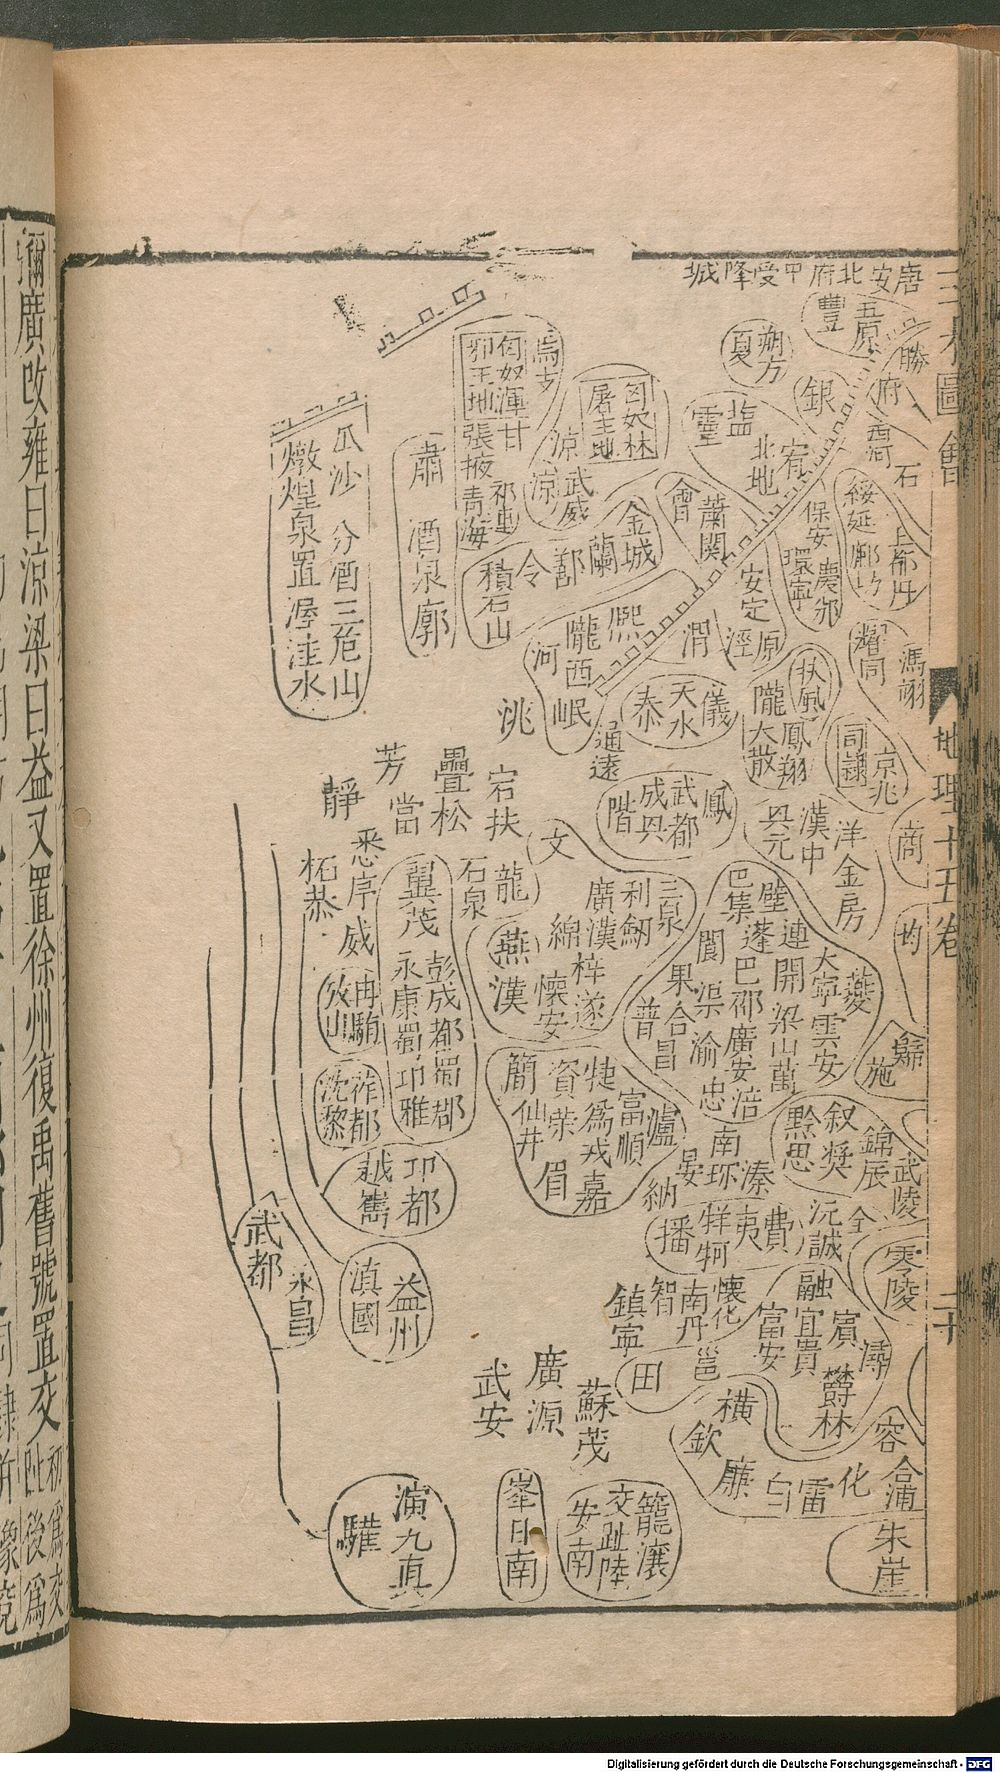 唐安北府中受降城
三才圖會
地理十五卷
二十
五原
豐
勝
府
朔方
夏
銀
西河
石
鹽
靈
宥
北地
綏延
鄜坊
上郡丹
保安
慶邠
環寧
匈奴休
屠王地
涼
武威
涼
烏支
匈奴渾
邪王地
甘
張掖
祁連
青海
肅
酒泉
廓
瓜沙
分酒三危山
燉煌泉置渥洼水
蕭關
會
金城
蘭
鄯
令
積石山
安定
原
涇
渭
熙
隴西
河
岷
洮
通遠
天水
儀
秦
扶風
隴
鳳翔
大散
馮翊
耀同
京兆
司隸
商
均
鳳
武都
成興
階
洋
漢中
興元
金房
宕扶
疊松
芳
當
靜
悉序
柘恭
威
冉駹
汶山
翼茂
彭成都蜀郡
永康蜀邛雅
石泉
龍
文
三泉
利劒
廣漢
綿
梓遂
懷安
燕
漢
壁
巴集
連
蓬
閬
開
巴
渠
果
合
普
昌
渝
廣安
梁山萬
大寧雲安
夔
忠
涪
歸
施
莋都
沈黎
邛都
越嶲
武都
永昌
益州
滇國
簡
資榮
仙井
眉
犍為戎
嘉
富順
瀘
叙獎
黔思
錦辰
武陵
南
珎
溱
晏
納
播
牂牁
夷
費
沅
誠
全
零陵
融
宜
貴
富安
賓
潯
欝林
懷化
南丹
智
鎮寧
邕
田
廣源
武安
蘇茂
橫
欽
廉
白
雷
化
容
合浦
朱崖
籠瀼
交趾陸
安南
峯日南
演九真
驩
彌廣改雍曰涼梁曰益又置徐州復禹舊號置交
初為交
趾後為
Digitalisierung gefördert durch die Deutsche Forschungsgemeinschaft - DFG